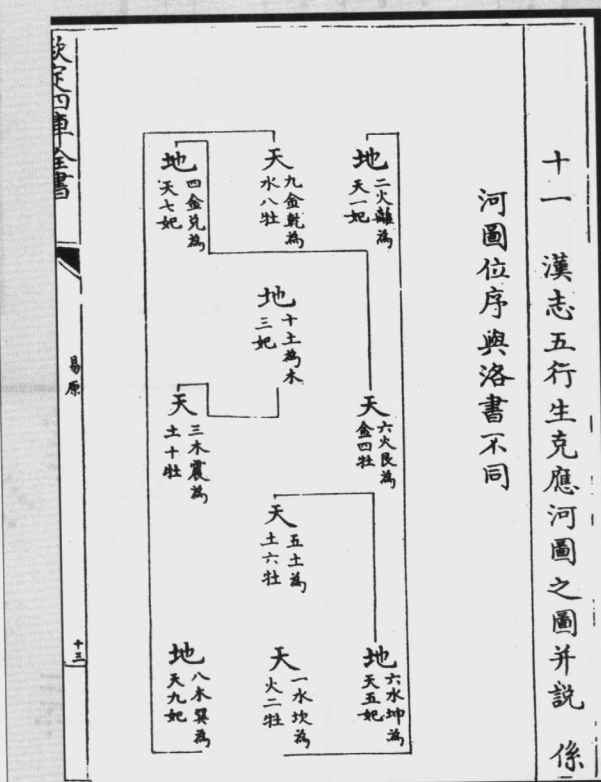 十一　漢志五行生克應河圖之圖并説　係
河圖位序與洛書不同
地
二火離為
天一妃
天
九金乾為
水八牡
地
四金兌為
天七妃
地
十土為木
三妃
天
六火艮為
金四牡
天
三木震為
土十牡
天
五土為
土六牡
地
六水坤為
天五妃
天
一水坎為
火二牡
地
八木巽為
天九妃
欽定四庫全書
易原
十三